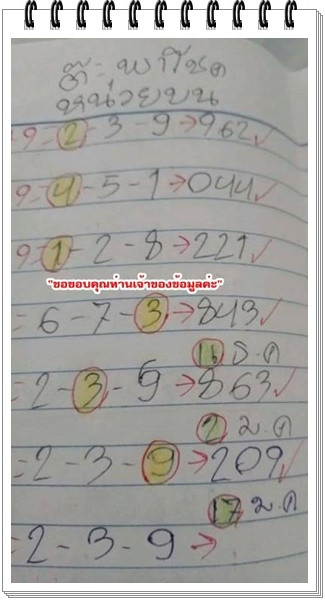 ตี๋ะ พาโชค
หน่วยบน
9=2-3-9→962✓
9=4-5-1→044✓
9=1-2-8→221✓
"ขอขอบคุณท่านเจ้าของข้อมูลค่ะ"
=6-7-3→843✓
16 ธ.ค
=2-3-9→863✓
2 ม.ค
=2-3-9→209✓
17 ม.ค
=2-3-9→